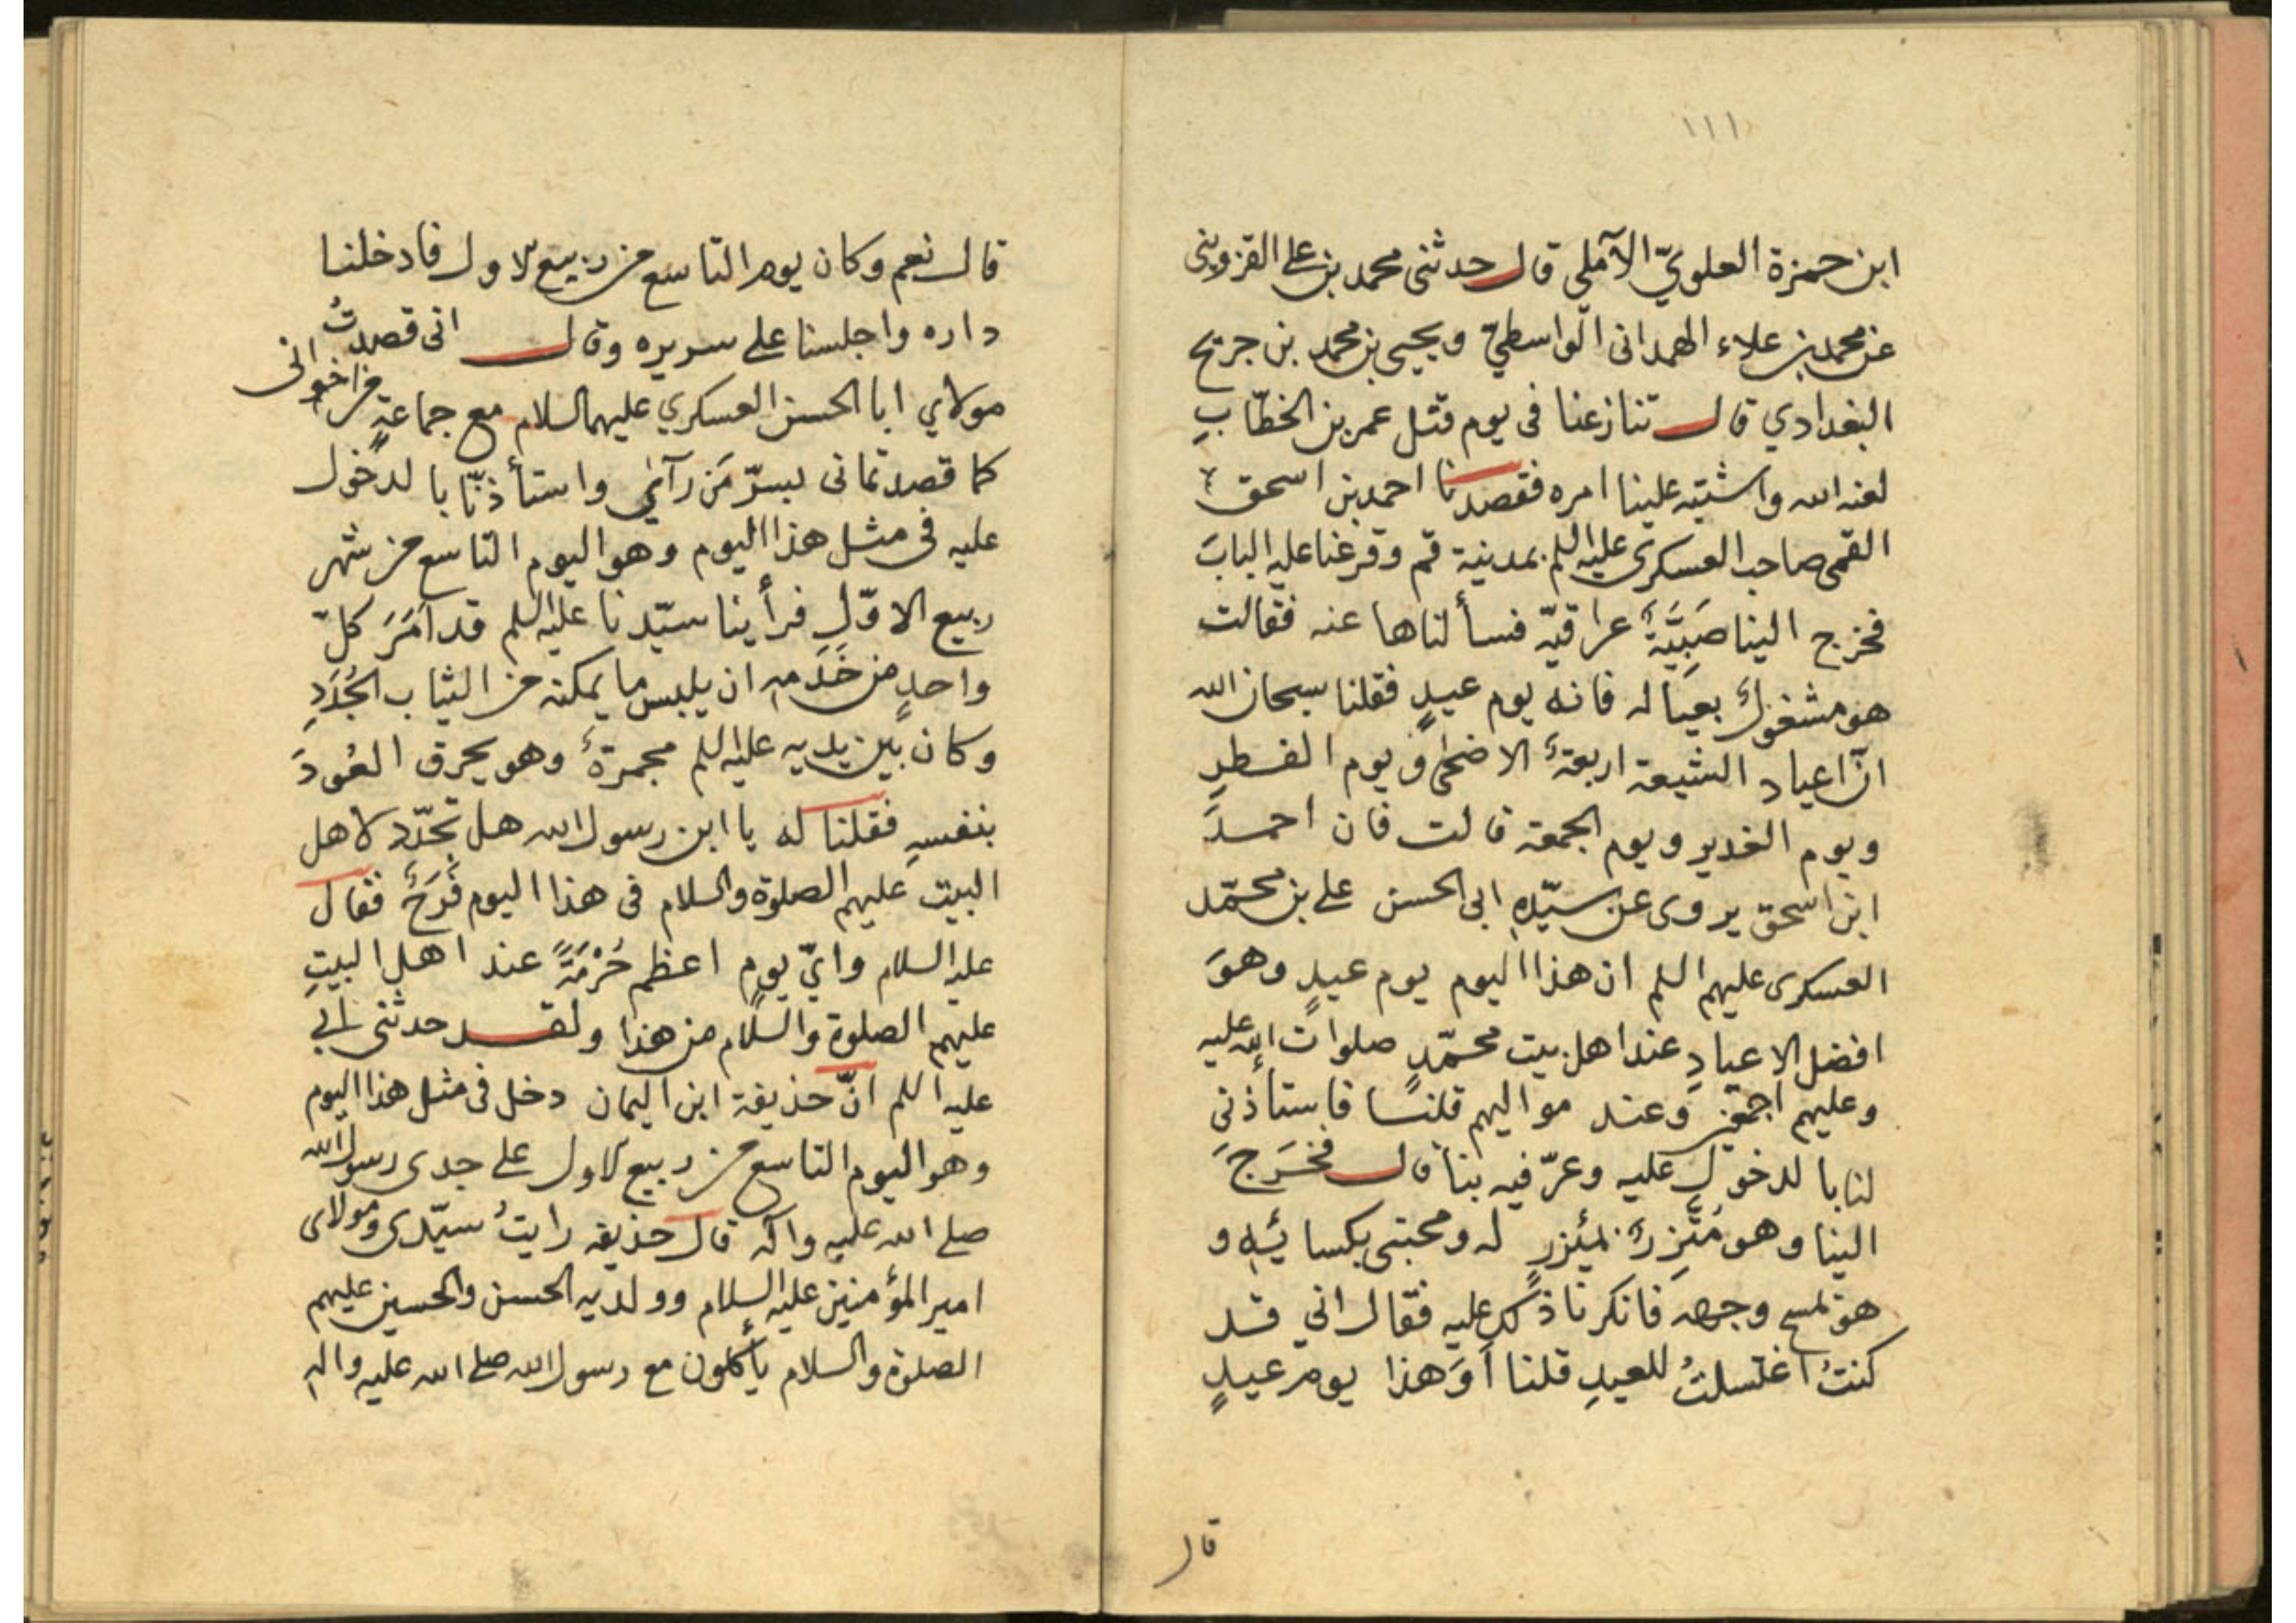 ١١١
ابن حمزة العلويّ الآملي قال حدثنى محمد بن على القزوينى
عن محمد بن علاء الهمدانى الواسطيّ ويحيى بن محمد بن جريح
البغدادي قال تنازعنا فى يوم قتل عمر بن الخطّابِ
لعنه الله واشتبه علينا امره فقصدنا احمد بن اسحق
القمى صاحب العسكرى عليه السلم بمدينة قم وقرعنا عليه البابَ
فخرج الينا صَبِيَّةٌ عراقيّه فسألناها عنه فقالت
هو مشغولٌ بعياله فانه يوم عيدٍ فقلنا سبحان الله
انّ اعياد الشيعة اربعةٌ الاضحٰى ويوم الفطرِ
ويوم الغدير ويوم الجمعة قالت فان احمدَ
ابن اسحق يروى عن سيّدِه ابى الحسن على بن محمّد
العسكرى عليهم السلم ان هذا اليوم يوم عيدٍ وهوَ
افضل الاعيادِ عند اهل بيت محمّدٍ صلوات الله عليه
وعليهم اجمعين وعند مواليهم قلنا فاستأذنى
لنا بالدخول عليه وعرّفيه بنا قال فخَرَجَ
الينا وهو مُتَّزِرٌ بمئزرٍ له ومحبتى بكسائِهِ و
هو يمسح وجهه فانكرنا ذلك عليه فقال انى قد
كنتُ اغتسلتُ للعيدِ قلنا أوَ هذا يوم عيدٍ
قال
قال نعم وكان يوم التاسع من ربيع الاول فادخلنا
داره واجلسنا على سريره وقال انى قصدتُ
مولاي ابا الحسن العسكري عليهما السلام مع جماعةٍ من اخوانى
كما قصدتمانى بسرّ مَن رآىٰ واستأذنّا بالدخول
عليه فى مثل هذا اليوم وهو اليوم التاسع من شهر
ربيع الاوّلِ فرأينا سيّدنا عليه السلم قد اَمَرَ كلّ
واحدٍ من خَدَمِه ان يلبس ما يمكنه من الثياب الجُدَدِ
وكان بين يديه عليه السلم مجمرةٌ وهو يحرق العُودَ
بنفسهِ فقلنا له يا ابن رسول الله هل تجدّد لاهل
البيت عليهم الصلوة والسلام فى هذا اليوم فَرَحٌ فقال
عليه السلام وايّ يوم اعظم حُرْمَةً عند اهل البيتِ
عليهم الصلوة والسلام من هذا ولقد حدثنى ابي
عليه السلم انّ حذيفة ابن اليمان دخل فى مثل هذا اليوم
وهو اليوم التاسع من ربيع الاول على جدى رسول الله
صلى الله عليه وآله قال حذيفه رايتُ سيّدى ومولاى
امير المؤمنين عليه السلام وولديه الحسن والحسين عليهم
الصلوة والسلام يأكلون مع رسول الله صلى الله عليه واله